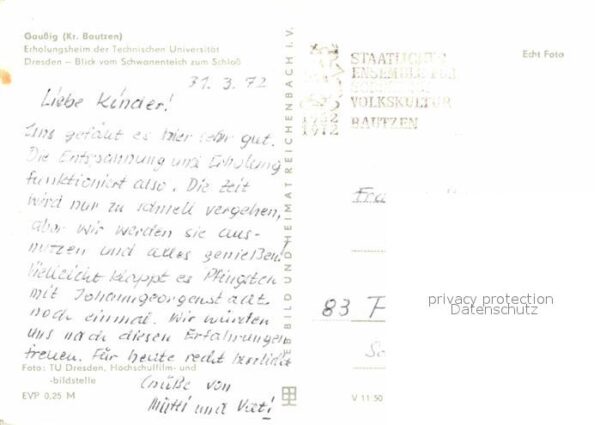 Gaußig (Kr. Bautzen)
Erholungsheim der Technischen Universität
Dresden – Blick vom Schwanenteich zum Schloß
31.3.72
Liebe Kinder!
Uns gefällt es hier sehr gut.
Die Entspannung und Erholung
funktioniert also. Die Zeit
wird nur zu schnell vergehen,
aber wir werden sie aus-
nutzen und alles genießen!
Vielleicht klappt es Pfingsten
mit Johanngeorgenstadt
noch einmal. Wir würden
uns nach diesen Erfahrungen
freuen. Für heute recht herzliche
Grüße von
Mutti und Vati
Foto: TU Dresden, Hochschulfilm- und
-bildstelle
EVP 0,25 M
BILD UND HEIMAT REICHENBACH I. V.
V 11 50
Echt Foto
STAATLICHES
ENSEMBLE FÜR
VOLKSKULTUR
BAUTZEN
1952
1972
Fra
83 P
privacy protection
Datenschutz